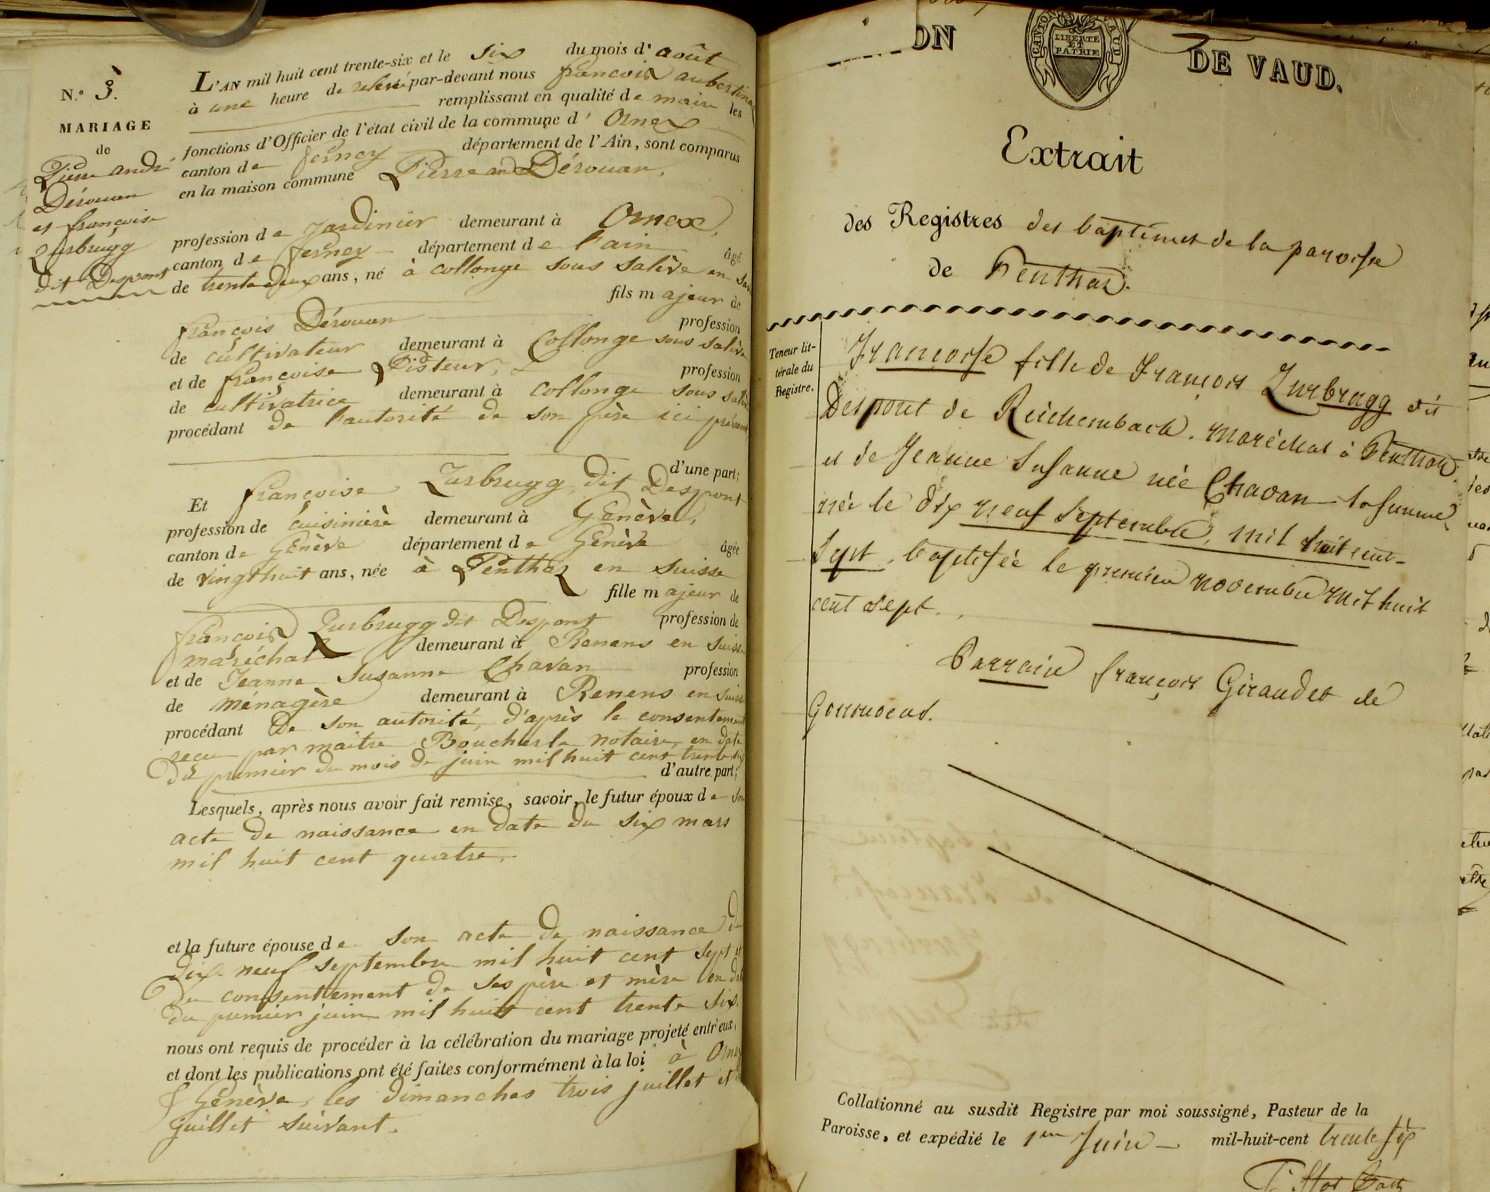 N.º 3.
MARIAGE
de
Pierre andré
Dérouan
et françoise
Zurbrugg
dit Despont
L'AN mil huit cent trente-six et le six du mois d' août
à une heure de relevé par-devant nous françois aubertin
remplissant en qualité de maire les
fonctions d'Officier de l'état civil de la commune d' Ornex
canton de fernex département de l'Ain, sont comparus
en la maison commune Pierre and Dérouan,
profession de Jardinier demeurant à Ornex,
canton de fernex département de l'ain âgé
de trente deux ans, né à Collonge sous salève en
fils majeur de
françois Dérouan profession
de cultivateur demeurant à Collonge sous salève
et de françoise Pisteur, profession
de cultivatrice demeurant à collonge sous
procédant de l'autorité de son père ici présent
d'une part;
Et françoise Zurbrugg, dit Despont
profession de cuisinière demeurant à Genève,
canton de Genève département de Genève âgée
de vingt huit ans, née à Penthaz en Suisse
fille majeur de
françois Zurbrugg dit Despont profession de
maréchal demeurant à Renens en Suisse
et de Jeanne Susanne Chavan profession
de ménagère demeurant à Renens en Suisse
procédant De son autorité, d'après le consentement
recu par maitre Boucherle notaire, en date
du premier du mois de juin mil huit cent trente six
d'autre part;
Lesquels, après nous avoir fait remise, savoir, le futur époux de son
acte de naissance en date du six mars
mil huit cent quatre,
et la future épouse de son acte de naissance du
dix neuf septembre mil huit cent sept et
du consentement de ses père et mère en date
du premier juin mil huit cent trente six.
nous ont requis de procéder à la célébration du mariage projeté entr'eux,
et dont les publications ont été faites conformément à la loi à Ornex
& Genève, les dimanches trois juillet et
juillet suivant.
ON DE VAUD.
CANTON VAUD
LIBERTÉ
ET
PATRIE
Extrait
des Registres des baptêmes de la paroisse
de Penthaz.
Teneur lit-
térale du
Registre.
Françoise fille de François Zurbrugg dit
Despont de Reichembach. maréchal à Penthaz.
et de Jeanne Susanne née Chavan sa femme,
née le dix neuf septembre, mil huit cent-
sept, baptisée le premier novembre mil huit
cent sept.
Parrain françois Giraudet de
Collationné au susdit Registre par moi soussigné, Pasteur de la
Paroisse, et expédié le 1er Juin mil-huit-cent trente six